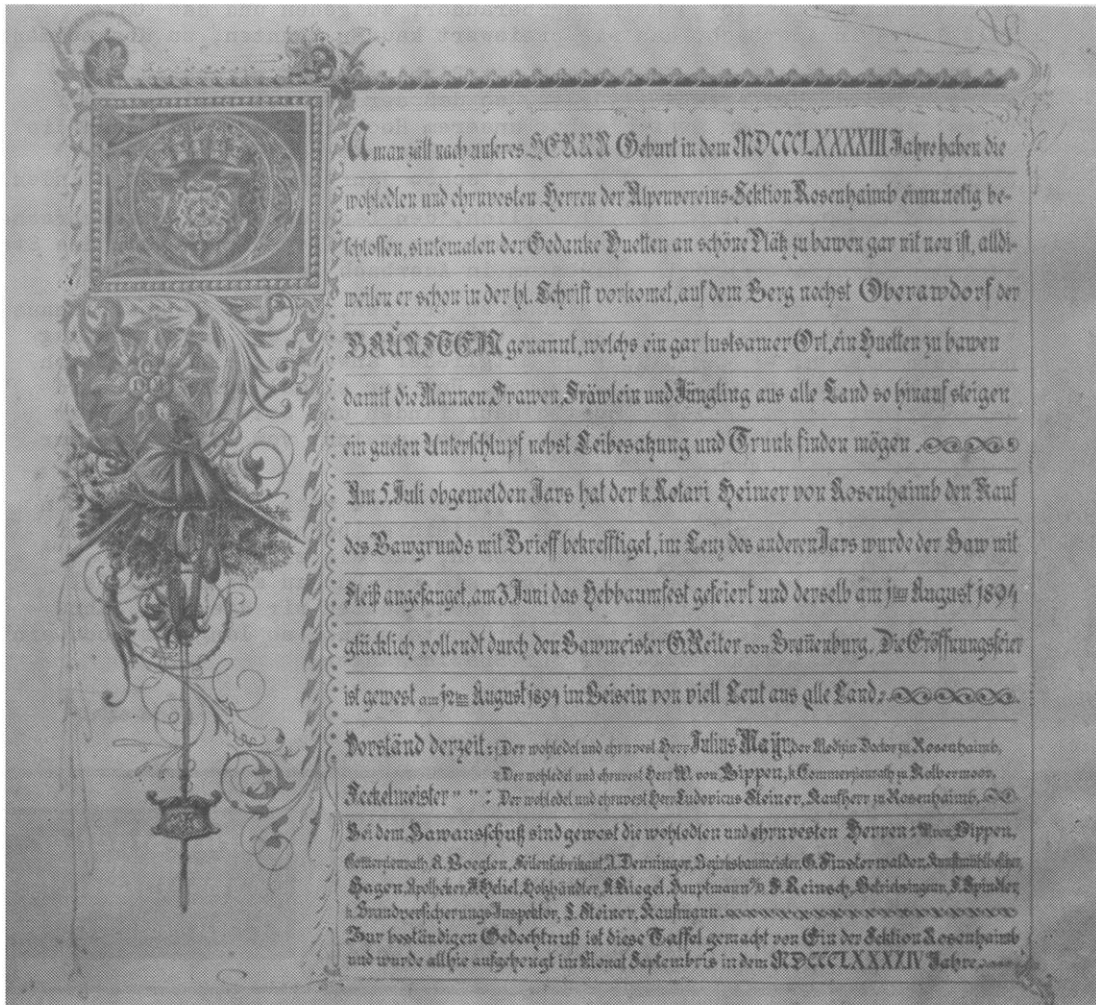 A man zält nach unseres HERRN Geburt in dem MDCCCLXXXXIII Jahre haben die
wohledlen und ehrnvesten Herren der Alpenvereins-Sektion Rosenhaimb einmuetig be-
schlossen, sintemalen der Gedanke Huetten an schöne Plätz zu bawen gar nit neu ist, alldi-
weilen er schon in der hl. Schrift vorkomet, auf dem Berg nechst Oberawdorf der
BRÜNSTEIN genannt, welchs ein gar lustsamer Ort, ein Huetten zu bawen
damit die Mannen, Frawen, Fräwlein und Jüngling aus alle Land so hinauf steigen
ein gueten Unterschlupf nebst Leibesatzung und Trunk finden mögen.
Am 5. Juli obgemelden Jars hat der k. Notari Heimer von Rosenhaimb den Kauf
des Bawgrunds mit Brieff bekrefftiget, im Lenz des anderen Jars wurde der Baw mit
Fleiß angefanget, am 3. Juni das Hebbaumfest gefeiert und derselb am j August 1894
glücklich vollendt durch den Bawmeister G. Reiter von Braüenburg. Die Eröffnungsfeier
ist gewest am j2 August 1894 im Beisein von viell Leut aus alle Land:
Vorständ derzeit: 1. Der wohledel und ehrnvest Herr Julius Mayr, der Medizin Doctor zu Rosenhaimb,
2. Der wohledel und ehrnvest Herr W. von Bippen, k. Commerzienrath zu Kolbermoor,
Seckelmeister " " : Der wohledel und ehrnvest Herr Ludovicus Steiner, Kaufherr zu Rosenhaimb.
Bei dem Bawausschuß sind gewest die wohledlen und ehrnvesten Herren: W. von Bippen,
Comerzienrath, Feilenfabrikant, A. Deuninger, Bezirksbaumeister, G. Finsterwalder,
Hagen, Apotheker, Holzhändler, A. Riegel, Hauptmann a/D F. Reinsch, Betriebsingen., F. Spindler,
k. Brandversicherungs Inspektor, L. Steiner, Kaufmann.
Zur beständigen Gedechtnuß ist diese Taffel gemacht von Ein der Sektion Rosenhaimb
und wurde allhie aufgehengt im Monat Septembris in dem MDCCCLXXXXIV Jahre.